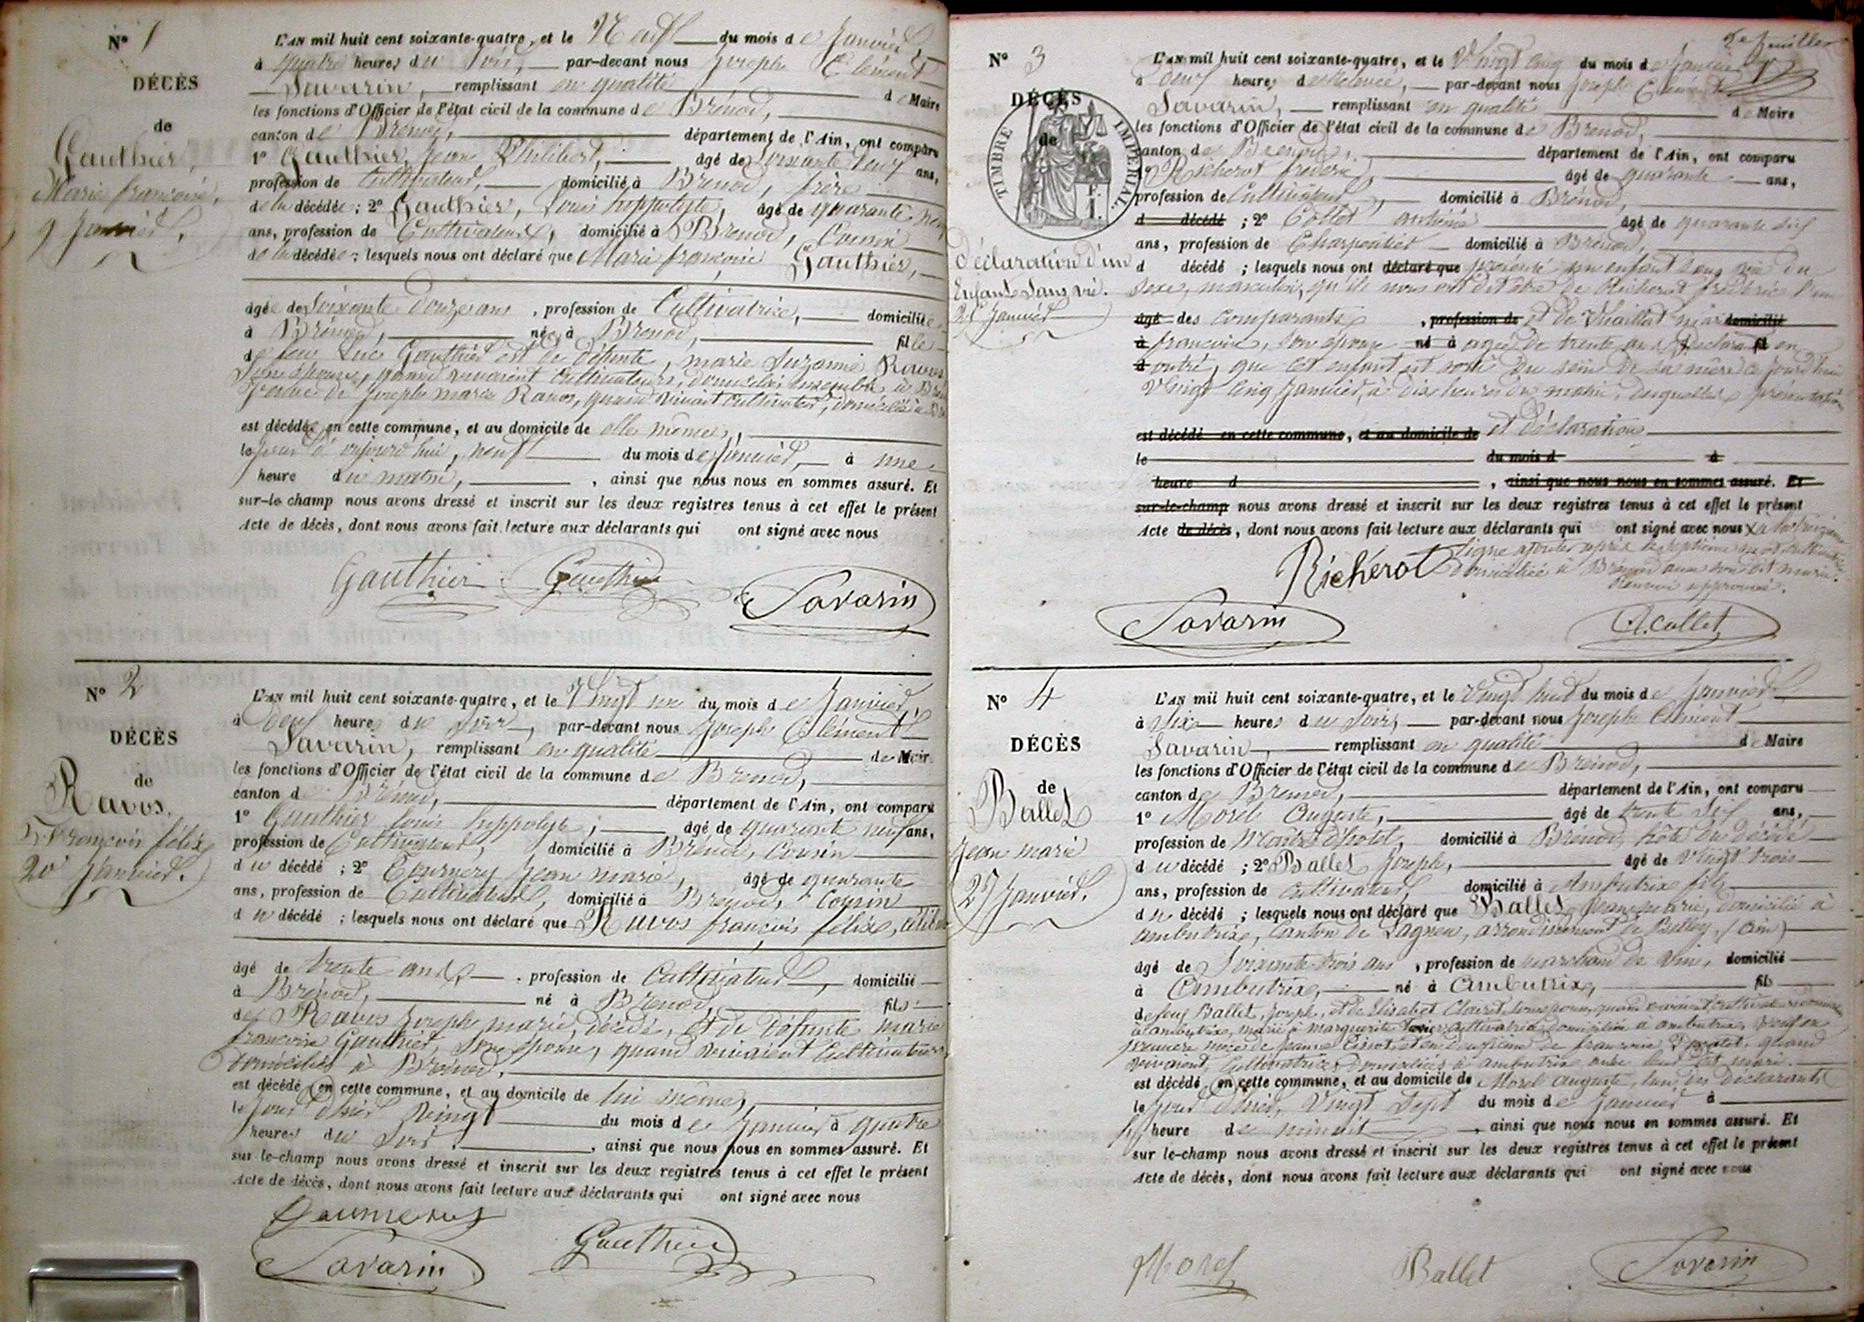 N° 1
DÉCÈS
de
Gauthier,
Marie françoise,
9 Janvier.
L'AN mil huit cent soixante-quatre, et le Neuf du mois de Janvier,
à quatre heures du soir, par-devant nous Joseph Clément
Savarin, remplissant en qualité de Maire
les fonctions d'Officier de l'état civil de la commune de Brénod,
canton de Brénod, département de l'Ain, ont comparu
1° Gauthier, Philibert, âgé de soixante neuf ans,
profession de Cultivateur, domicilié à Brénod, frère
de la décédée ; 2° Gauthier, Louis hippolyte, âgé de quarante neuf
ans, profession de Cultivateur, domicilié à Brénod, Cousin
de la décédée ; lesquels nous ont déclaré que Marie françoise Gauthier,
âgée de Soixante douze ans, profession de Cultivatrice, domiciliée
à Brénod, née à Brénod, fille
de feu Luc Gauthier et de défunte, marie Suzanne Ravos
Son épouse, quand vivaient Cultivateurs, domiciliés ensemble à
veuve de Joseph marie Ravos, quand vivait Cultivateur, domicilié à
est décédée en cette commune, et au domicile de elle même,
le jour d'aujourd'hui, neuf du mois de Janvier, à une
heure du matin, ainsi que nous nous en sommes assuré. Et
sur-le champ nous avons dressé et inscrit sur les deux registres tenus à cet effet le présent
Acte de décès, dont nous avons fait lecture aux déclarants qui ont signé avec nous
Gauthier Gauthier Savarin
N° 2
DÉCÈS
de
Ravos,
François félix
20 Janvier.
L'AN mil huit cent soixante-quatre, et le Vingt un du mois de Janvier,
à deux heures du Soir, par-devant nous Joseph Clément
Savarin, remplissant en qualité de Maire
les fonctions d'Officier de l'état civil de la commune de Brénod,
canton de Brénod, département de l'Ain, ont comparu
1° Gauthier louis hippolyte, âgé de quarante neuf ans,
profession de Cultivateur, domicilié à Brénod, Cousin
du décédé ; 2° Tournery Jean marie, âgé de quarante
ans, profession de Cultivateur, domicilié à Brénod, Cousin
du décédé ; lesquels nous ont déclaré que Ravos françois félix,
âgé de trente ans, profession de Cultivateur, domicilié
à Brénod, né à Brénod, fils
de Ravos Joseph marie, décédé, et de défunte marie
françoise Gauthier, Son épouse, quand vivaient Cultivateurs
domiciliés à Brénod.
est décédé en cette commune, et au domicile de lui même,
le jour d'hier vingt du mois de Janvier à quatre
heures du Soir, ainsi que nous nous en sommes assuré. Et
sur-le-champ nous avons dressé et inscrit sur les deux registres tenus à cet effet le présent
Acte de décès, dont nous avons fait lecture aux déclarants qui ont signé avec nous
Savarin Gauthier
2e feuillet
N° 3
DÉCÈS
de
TIMBRE IMPÉRIAL
1 F.
Déclaration d'un
Enfant Sans vie.
25 Janvier
L'AN mil huit cent soixante-quatre, et le Vingt cinq du mois de Janvier
à deux heures de relevée, par-devant nous Joseph Clément
Savarin, remplissant en qualité de Maire
les fonctions d'Officier de l'état civil de la commune de Brénod,
canton de Brénod, département de l'Ain, ont comparu
1° Richerot frédéric, âgé de quarante ans,
profession de Cultivateur, domicilié à Brénod,
d décédé ; 2° Collet antoine âgé de quarante six
ans, profession de Charpentier domicilié à Brénod,
d décédé ; lesquels nous ont déclaré que présenté un enfant Sans vie du
Sexe, masculin, qu'ils nous ont dit être de Richerot frédéric l'un
âgé des comparants, profession de et de domicilié
à françoise, son épouse né à agée de trente ans déclarant fil en
d outre, que cet enfant est sorti du sein de Sa mère ce jourd'hui
Vingt cinq Janvier, à dix heures du matin, desquelles présentation
est décédé en cette commune, et au domicile de et déclaration
le du mois d à
heure d , ainsi que nous nous en sommes assuré. Et
sur-le-champ nous avons dressé et inscrit sur les deux registres tenus à cet effet le présent
Acte de décès, dont nous avons fait lecture aux déclarants qui ont signé avec nous
domiciliée à Brénod avec son dit mari.
approuvé.
Richerot
Savarin A. Collet
N° 4
DÉCÈS
de
Ballet
Jean marie
27 Janvier.
L'AN mil huit cent soixante-quatre, et le Vingt huit du mois de Janvier
à Six heures du Soir, par-devant nous Joseph Clément
Savarin, remplissant en qualité de Maire
les fonctions d'Officier de l'état civil de la commune de Brénod,
canton de Brénod, département de l'Ain, ont comparu
1° Morel Auguste, âgé de trente Six ans,
profession de Maître d'hôtel, domicilié à Brénod, hôte du décédé
du décédé ; 2° Ballet Joseph, âgé de Vingt trois
ans, profession de Cultivateur, domicilié à Ambutrix fils
du décédé ; lesquels nous ont déclaré que Ballet Jean marie, domicilié à
ambutrix, Canton de Lagnieu, arrondissement de Belley, (ain)
âgé de Soixante trois ans, profession de marchand de Vin, domicilié
à Ambutrix, né à Ambutrix, fils
de feu Ballet, Joseph, et de Elisabet Clairet, son épouse, quand vivaient Cultivateurs
à ambutrix, marié à marguerite Cultivatrice, domiciliée à ambutrix, veuf en
première noce de et en deuxième de françoise quand
vivaient, Cultivatrices domiciliées à ambutrix avec leur dit mari.
est décédé en cette commune, et au domicile de Morel Auguste, l'un des déclarants
le jour d'hier, Vingt Sept du mois de Janvier à
heure de minuit, ainsi que nous nous en sommes assuré. Et
sur le-champ nous avons dressé et inscrit sur les deux registres tenus à cet effet le présent
Acte de décès, dont nous avons fait lecture aux déclarants qui ont signé avec nous
Morel Ballet Savarin